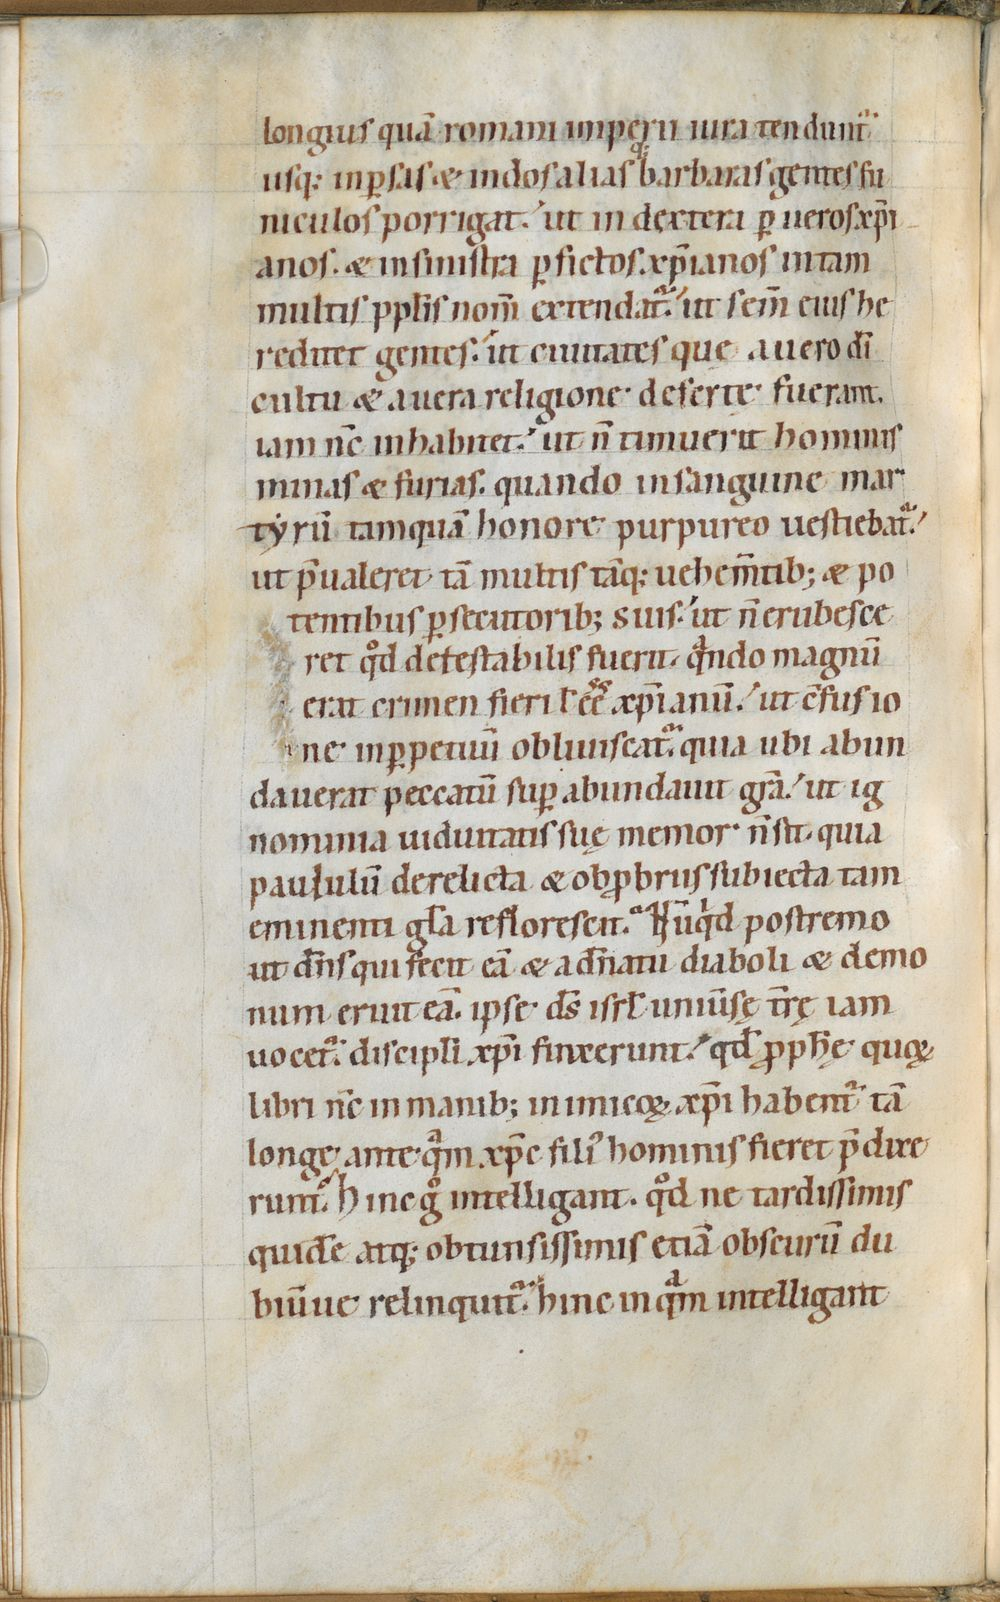 longius quā romani imperii iura tendunt᷑
usq; in ꝑsas & indos aliasq; barbaras gentes fu
niculos porrigat. ut in dextera ꝑ ueros xp̄i
anos. & in sinistra ꝑ fictos xp̄ianos in tam
multis ppl̄is nom̄ extendat᷑. ut sem̄ eius he
reditet gentes. ut ciuitates que a uero dī
cultu & a uera religione deserte fuerant.
iam nc̄ inhabitet. ut n̄ timuerit hominis
minas & furias. quando in sanguine mar
tẏrū tamquā honore purpureo uestiebat᷑.
ut p̄ualeret tā multis tāq; uehem̄tib; & po
tentibus ꝑsecutorib; suis. ut n̄ erubesce
ret qͦd detestabilis fuerit. qᷓndo magnū
erat crimen fieri ł ēē xp̄ianū. ut c̄fusio
ne in ꝑpetuū obliuiscat᷑. quia ubi abun
dauerat peccatū suꝑabundauit grā. ut ig
nominia uiduitatis suę memor n̄ sit. quia
paululū derelicta & obꝓbriis subiecta tam
eminenti gła reflorescit. Nūqͥd postremo
ut dn̄s qui fecit eā & a dn̄atu diaboli & demo
num eruit eā. ipse ds̄ isrł uniūsę t̄rę iam
uocet᷑. discipli xp̄i finxerunt. qd̄ ꝓph̄ę quoꝝ
libri nc̄ in manib; inimicoꝝ xp̄i habent᷑ tā
longe ante qᷓm xp̄c filiꝰ hominis fieret p̄dixe
runt. hinc gͦ intelligant. qͦd ne tardissimis
quidē atq; obtunsissimis etiā obscurū du
biūue relinquit᷑. hinc inqᷓm intelligant